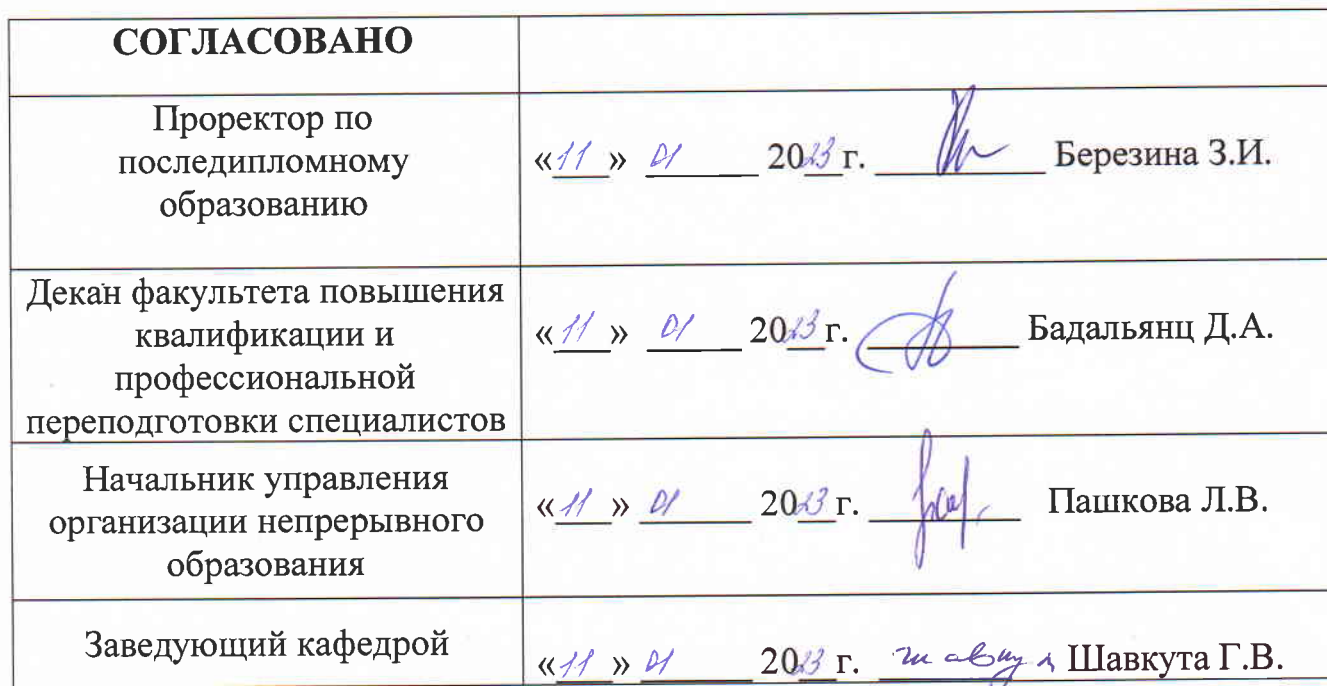 СОГЛАСОВАНО
Проректор по
последипломному
образованию
«11» 01 2023 г. Березина З.И.
Декан факультета повышения
квалификации и
профессиональной
переподготовки специалистов
«11» 01 2023 г. Бадальянц Д.А.
Начальник управления
организации непрерывного
образования
«11» 01 2023 г. Пашкова Л.В.
Заведующий кафедрой
«11» 01 2023 г. Шавкута Г.В.